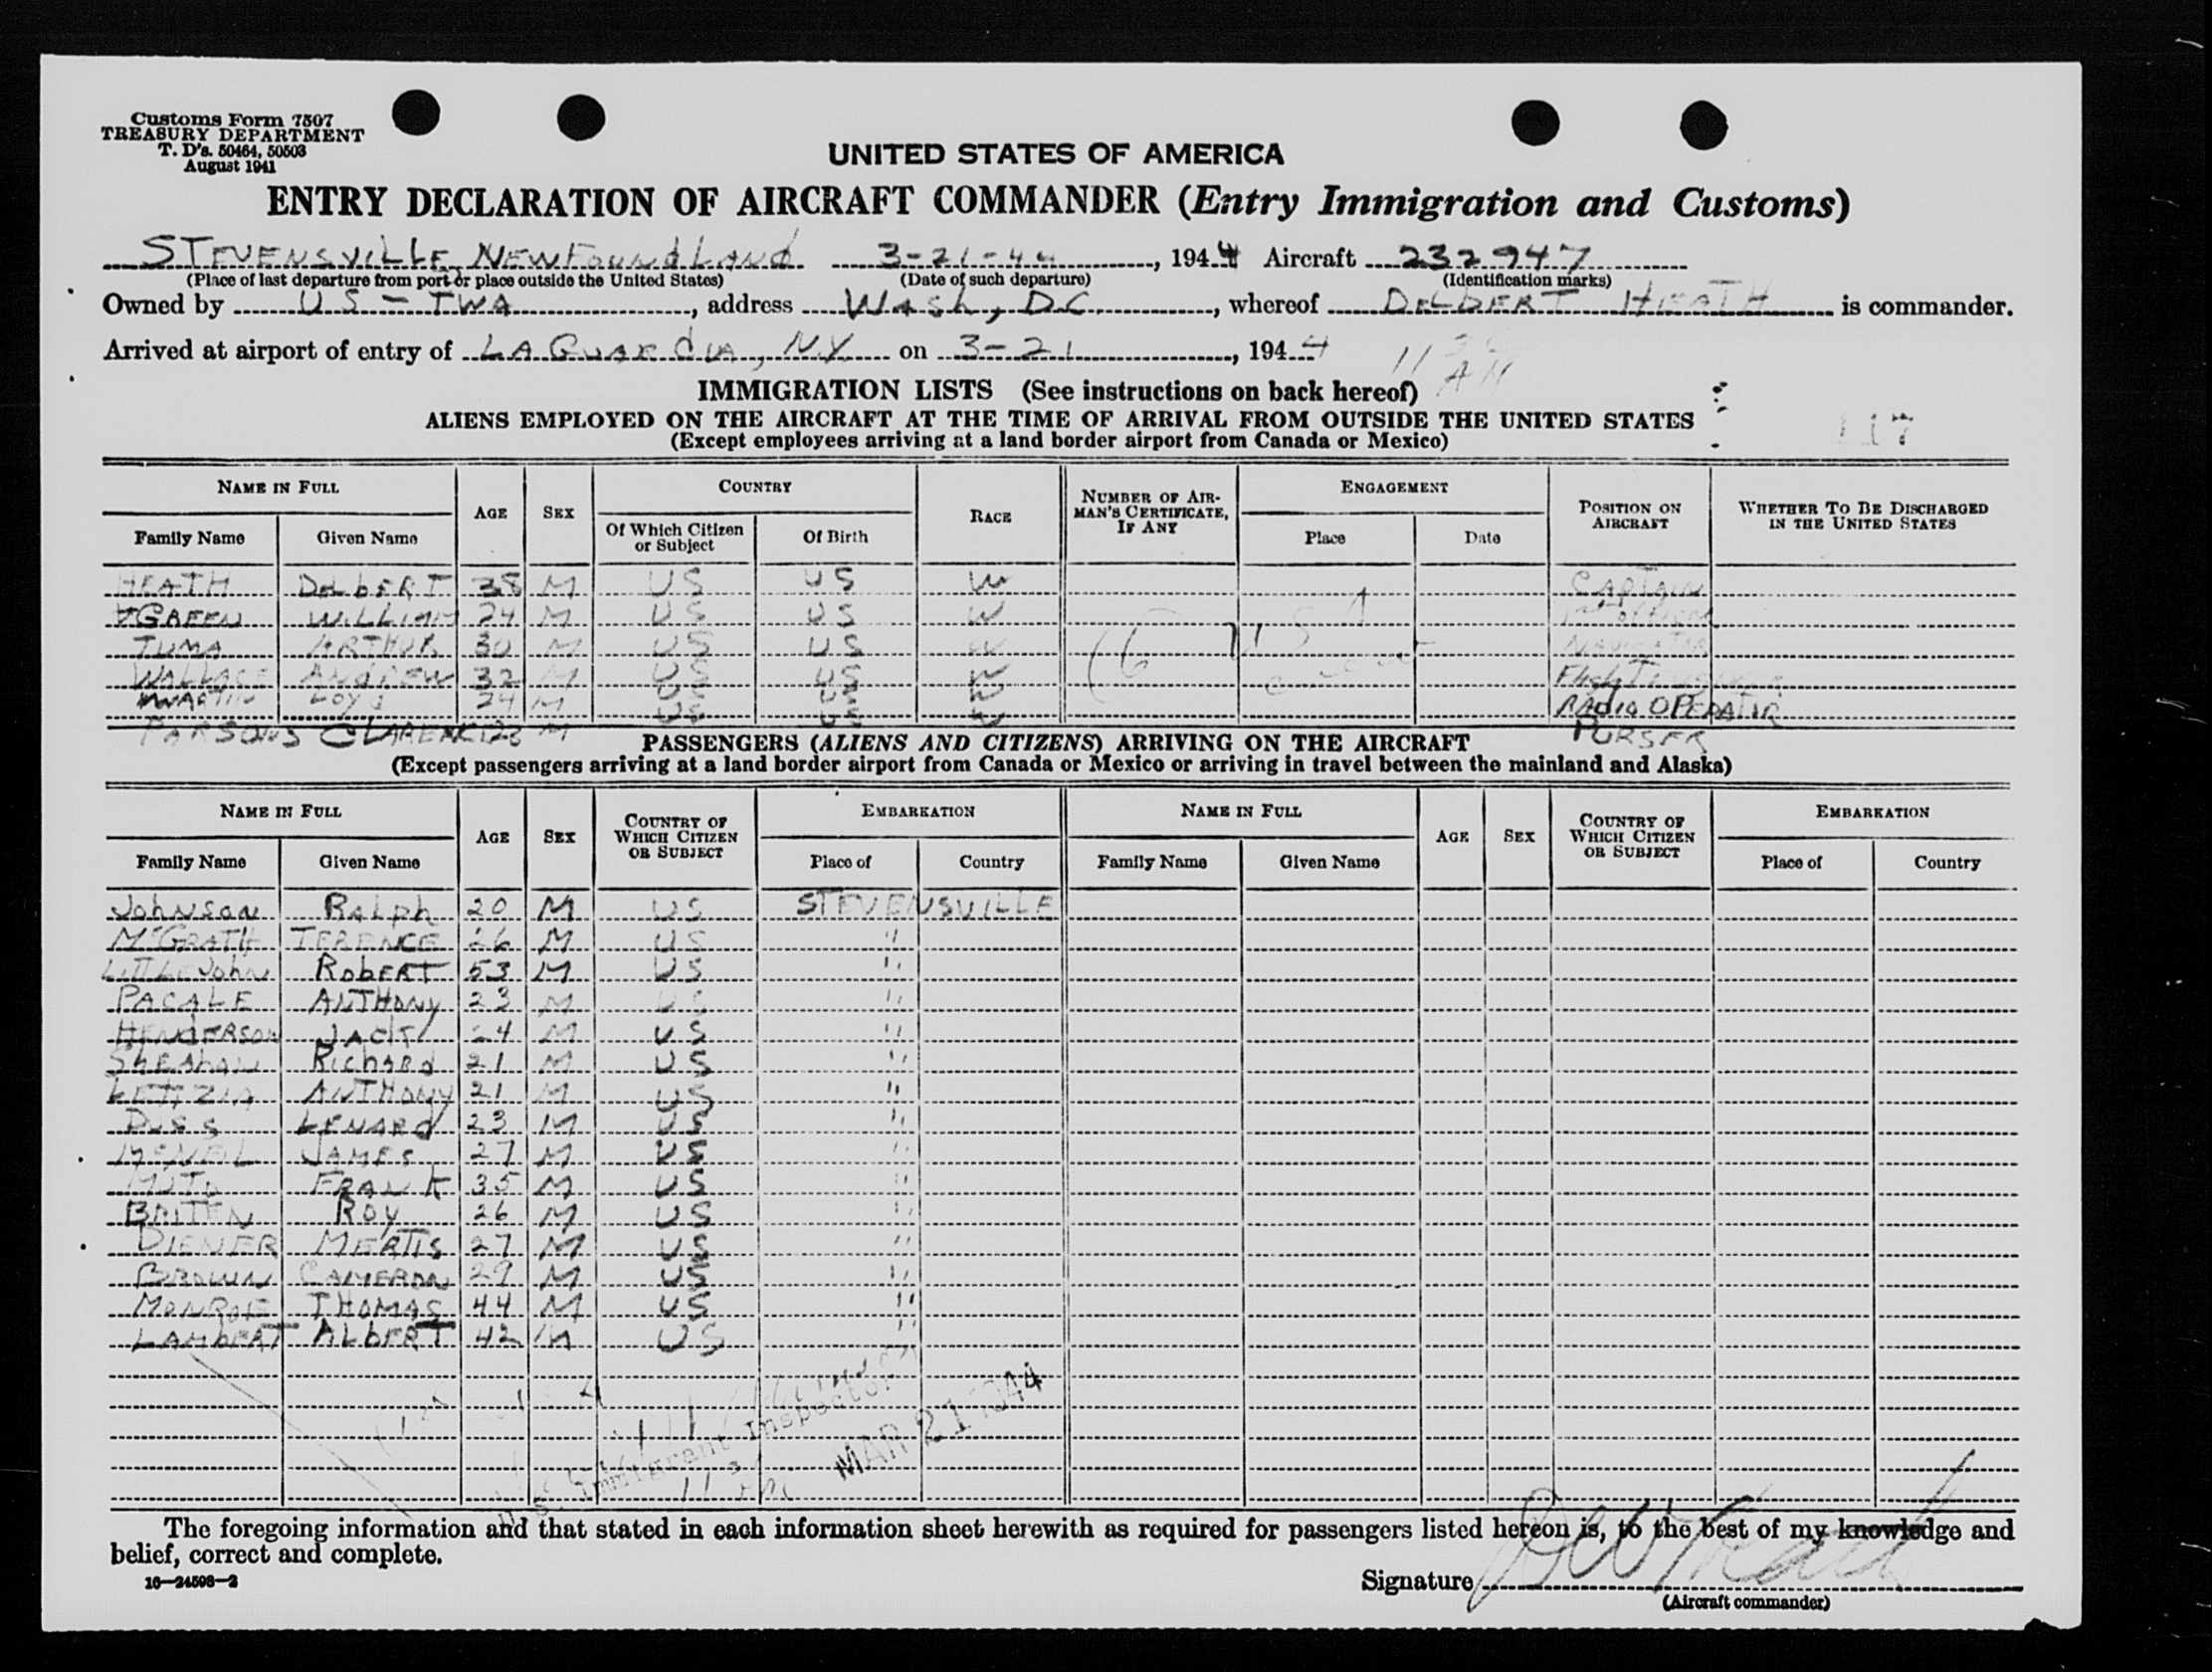 Customs Form 7507
TREASURY DEPARTMENT
T. D's. 50464, 50503
August 1941
UNITED STATES OF AMERICA
ENTRY DECLARATION OF AIRCRAFT COMMANDER (Entry Immigration and Customs)
STEVENSVILLE NEWFOUNDLAND 3-21-44, 1944 Aircraft 232947
(Place of last departure from port or place outside the United States) (Date of such departure) (Identification marks)
Owned by US - TWA, address Wash, DC, whereof DELBERT HEATH is commander.
Arrived at airport of entry of LA GUARDIA, NY on 3-21, 1944
IMMIGRATION LISTS (See instructions on back hereof)
ALIENS EMPLOYED ON THE AIRCRAFT AT THE TIME OF ARRIVAL FROM OUTSIDE THE UNITED STATES
(Except employees arriving at a land border airport from Canada or Mexico)
117
NAME IN FULL AGE SEX COUNTRY RACE NUMBER OF AIRMAN'S CERTIFICATE, IF ANY ENGAGEMENT POSITION ON AIRCRAFT WHETHER TO BE DISCHARGED IN THE UNITED STATES
Family Name Given Name Of Which Citizen or Subject Of Birth Place Date
HEATH DELBERT 38 M US US W CAPTAIN
GREEN WILLIAM 24 M US US W 1st officer
TUMA ARTHUR 30 M US US W NAVIGATOR
WALLACE ANDREW 32 M US US W Flight
MARTIN LOYD 24 M US US W RADIO OPERATOR
PARSONS CLARENCE 23 M PURSER
PASSENGERS (ALIENS AND CITIZENS) ARRIVING ON THE AIRCRAFT
(Except passengers arriving at a land border airport from Canada or Mexico or arriving in travel between the mainland and Alaska)
NAME IN FULL AGE SEX COUNTRY OF WHICH CITIZEN OR SUBJECT EMBARKATION NAME IN FULL AGE SEX COUNTRY OF WHICH CITIZEN OR SUBJECT EMBARKATION
Family Name Given Name Place of Country Family Name Given Name Place of Country
JOHNSON RALPH 20 M US STEVENSVILLE
McGRATH TERENCE 26 M US "
LITTLEJOHN ROBERT 53 M US "
PACALE ANTHONY 23 M US "
HENDERSON JACK 24 M US "
SHEAHAN RICHARD 21 M US "
LETIZIA ANTHONY 21 M US "
DUSS LENARD 23 M US "
McNEIL JAMES 27 M US "
MUTO FRANK 35 M US "
BRITEN ROY 26 M US "
DIENER MERTIS 27 M US "
BROWN CAMERON 29 M US "
MONROE THOMAS 44 M US "
LAMBERT ALBERT 42 M US "
U.S. Immigrant Inspector
MAR 21 1944
The foregoing information and that stated in each information sheet herewith as required for passengers listed hereon is, to the best of my knowledge and
belief, correct and complete.
16—24598-2
Signature
(Aircraft commander)